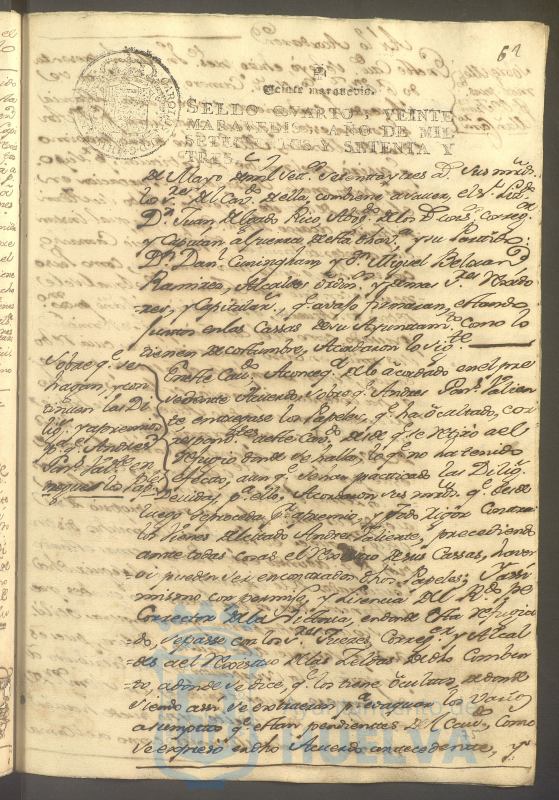 62
Veinte maravedis.
SELLO QVARTO, VEINTE
MARAVEDIS, AÑO DE MIL
SETECIENTOS Y SETENTA Y
TRES.
de Mayo de mil setz.s setenta y tres a.s Sus mrds.
los s.res del Cav.do de ella, combiene a saver, el s.r Liz.do
D.n Juan Delgado Rico, Abog.do de los R.s Consejos, Correg.or
y Capitan a Guerra de esta
D.n Dan.l Cuningham y D.n Miguel Belmar
Ramirez, Alcaldes ordin.s y demas s.res Rexido
res, y Capitular.s q. avajo firmaran, estando
juntos en las Cassas de su Ayuntam.to como lo
tienen de costumbre, Acordaron lo sig.te
Sobre q. se
hagan, y con
tinuen las Di
lig.s y apremios
p.a q. Andres
Pan.o Val.te en
tregue los Pap.s
En este Cav.do A conseq.a de lo acordado en el pre
sedente Acuerdo, sobre q. Andres Pan.o Valien
te entregase los Papeles, q. ha ocultado, cor
respond.tes a este Cav.do desde q. se retiro a el
refugio donde se halla; lo q. no ha tenido
efecto, aunq. se han practicado las Dilig.s
devidas p.a ello, Acordaron sus mrds. q. desde
luego se proceda p.r apremio, y todo rigor contra
los vienes del citado Andres Valiente, precediendo
ante todas cosas el Rexistro de sus Cassas, haver
si pueden ser encontrados dhos. Papeles; Y assi
mismo con permiso, y licencia del R.do P.e
Corrector de la Victoria, en donde esta refugia
do, se passe con los s.res Juezes, Correg.or y Alcal
des a el Rexistro de las Zeldas de dho Comben
to, adonde se dize, q. los tiene ocultos, de donde
siendo assi se extraeran p.a evaquar los varios
asumptos q. estan pendientes de este Cav.do, como
se expreso en dho Acuerdo antecedente, y
HUELVA